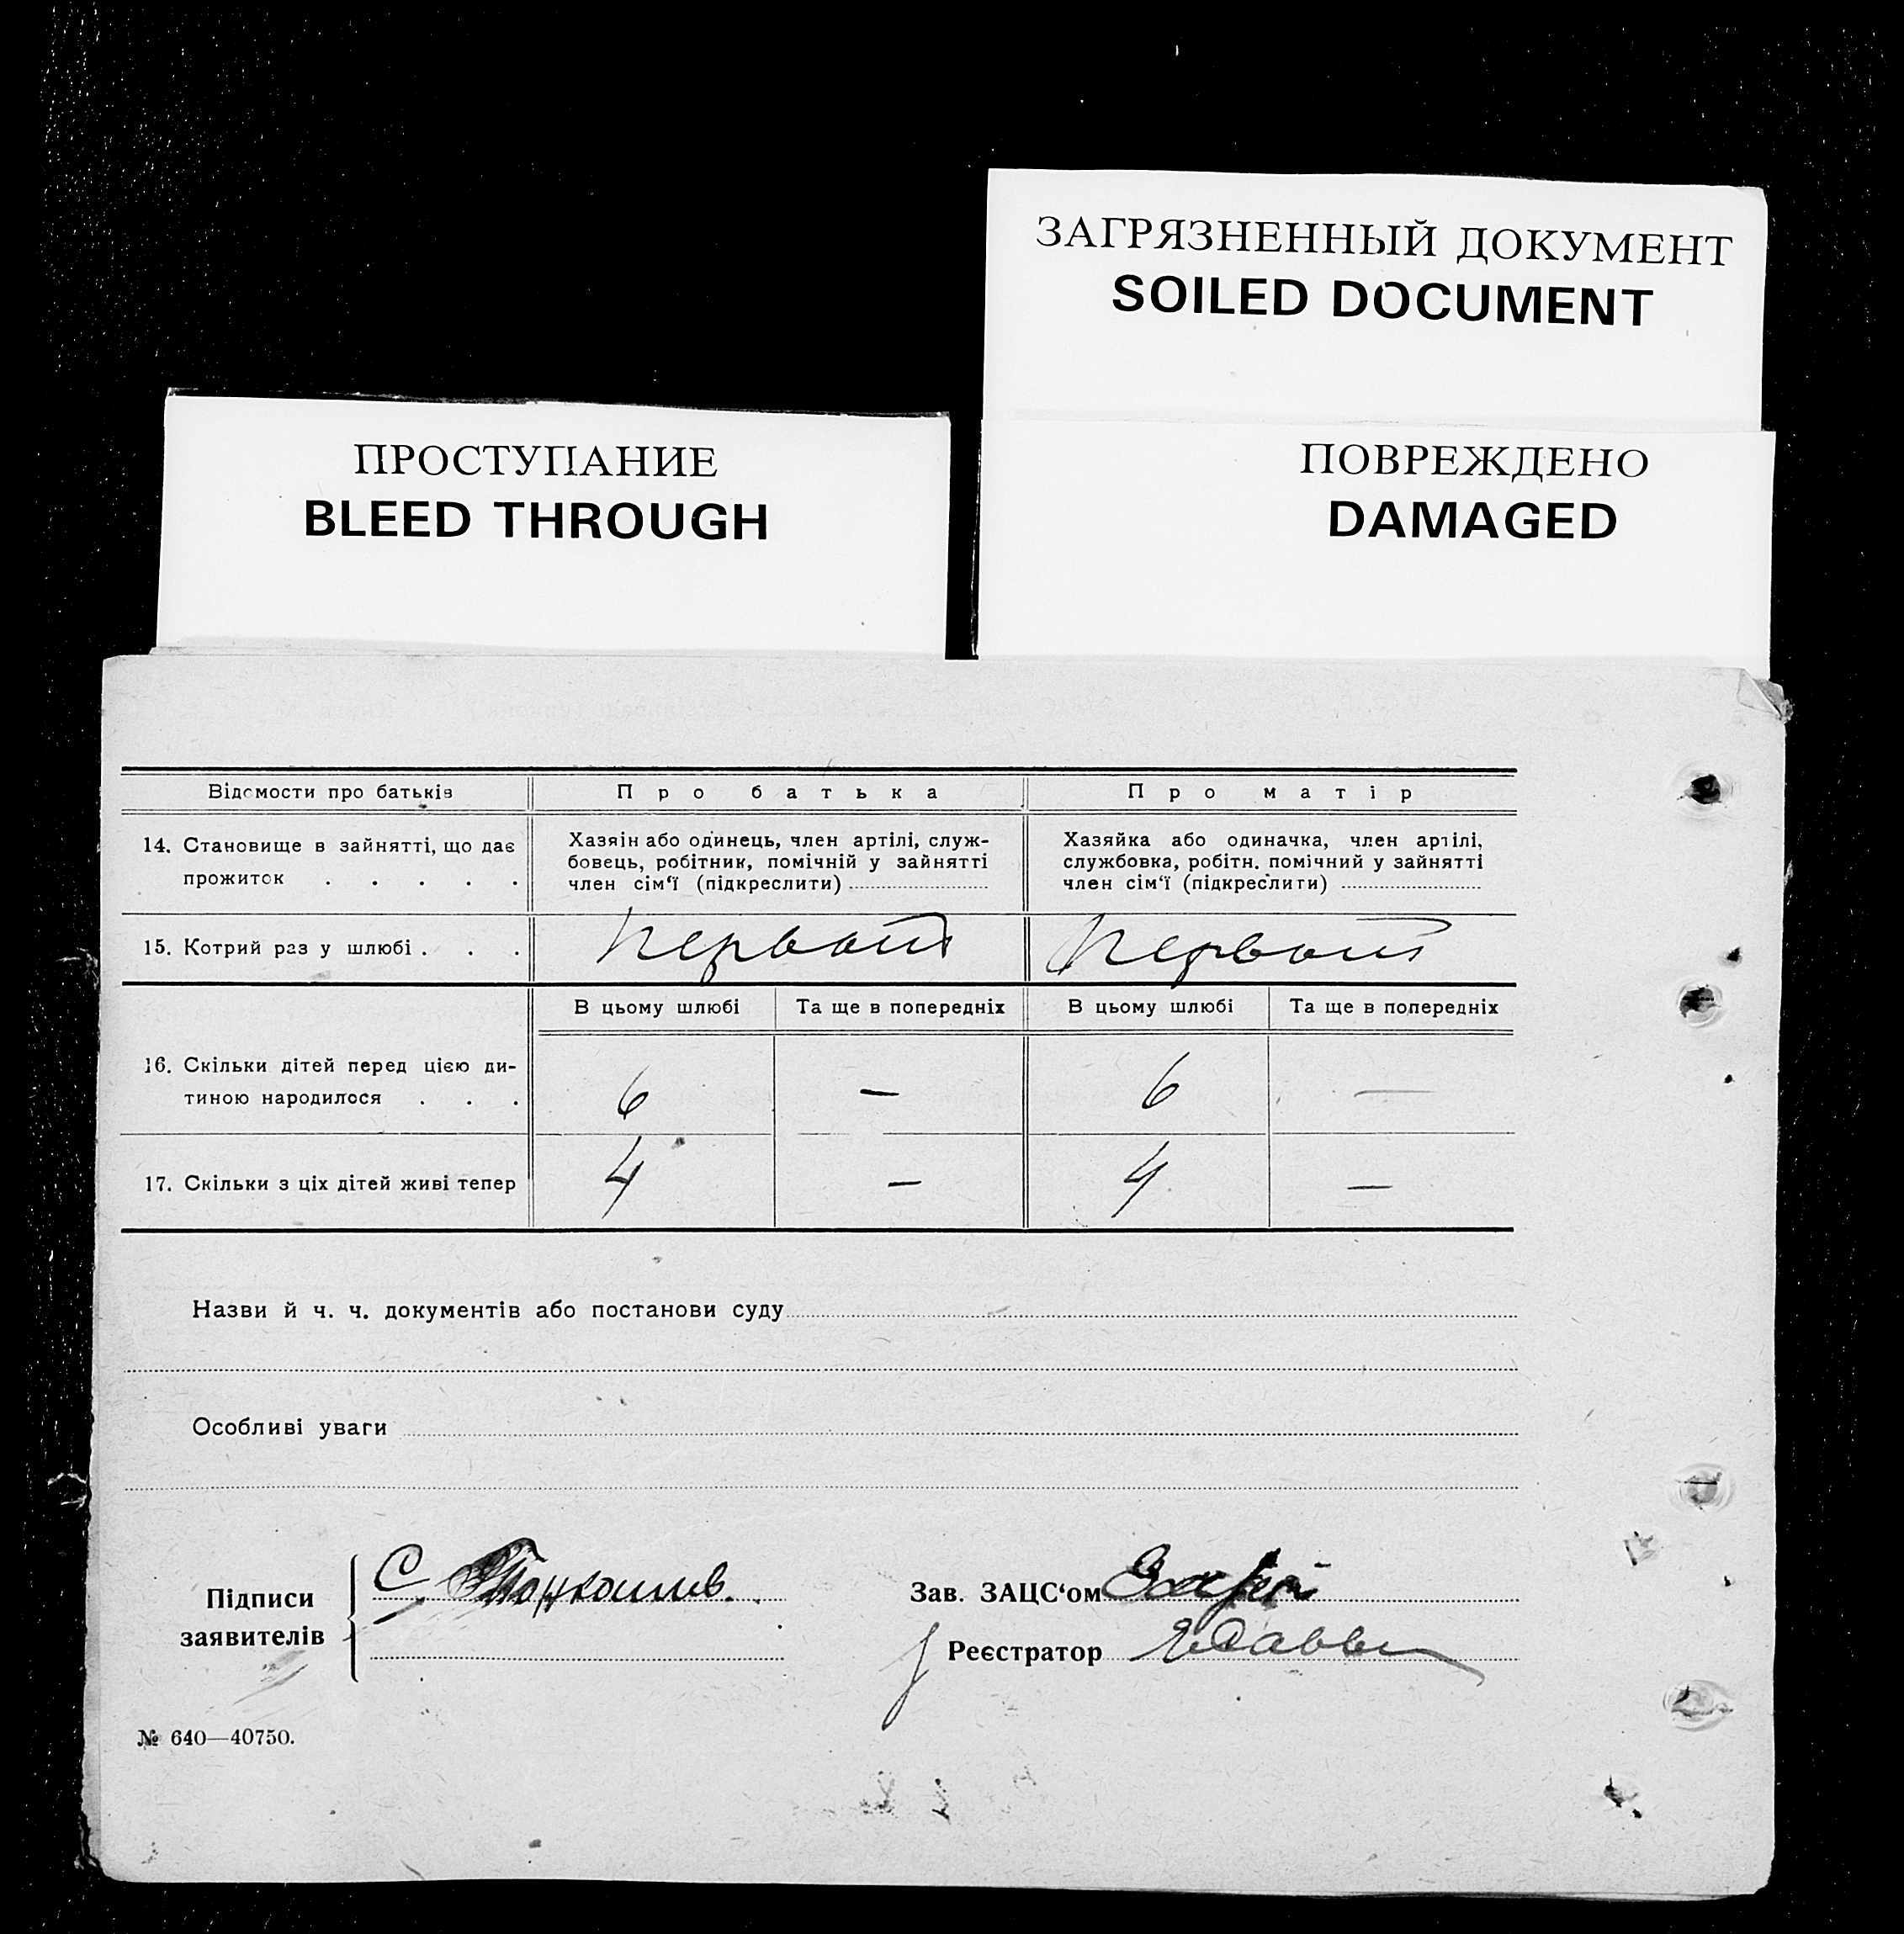 ЗАГРЯЗНЕННЫЙ ДОКУМЕНТ
SOILED DOCUMENT
ПРОСТУПАНИЕ
BLEED THROUGH
ПОВРЕЖДЕНО
DAMAGED
Відомости про батьків Про батька Про матір
14. Становище в зайнятті, що дає
прожиток . . . . .
Хазяін або одинець, член артілі, служ-
бовець, робітник, помічній у зайнятті
член сім‘ї (підкреслити)
Хазяйка або одиначка, член артілі,
службовка, робітн. помічний у зайнятті
член сім‘ї (підкреслити)
15. Котрий раз у шлюбі . . . Первый Первый
В цьому шлюбі Та ще в попередніх В цьому шлюбі Та ще в попередніх
16. Скільки дітей перед цією ди-
тиною народилося . . . 6 — 6 —
17. Скільки з ціх дітей живі тепер 4 — 4 —
Назви й ч. ч. документів або постанови суду
Особливі уваги
Підписи
заявителів
С.
Зав. ЗАЦС‘ом
Реєстратор
№ 640—40750.